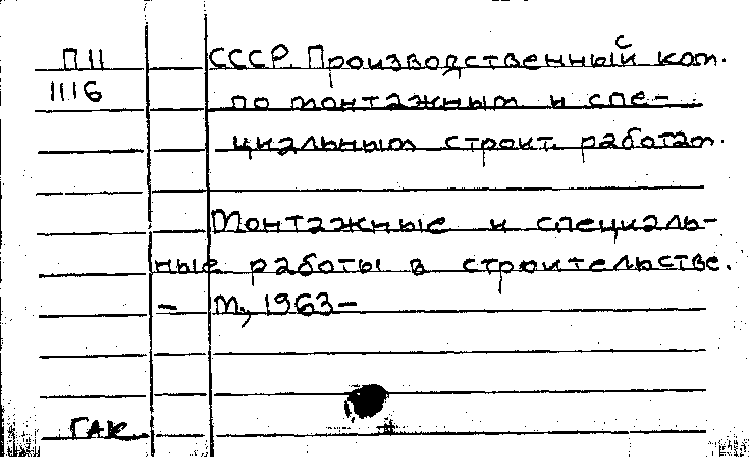 П 11
1116
СССР. Производственный ком.
по монтажным и спе-
циальным строит. работам.
Монтажные и специаль-
ные работы в строительстве.
– М., 1963–
ГАК